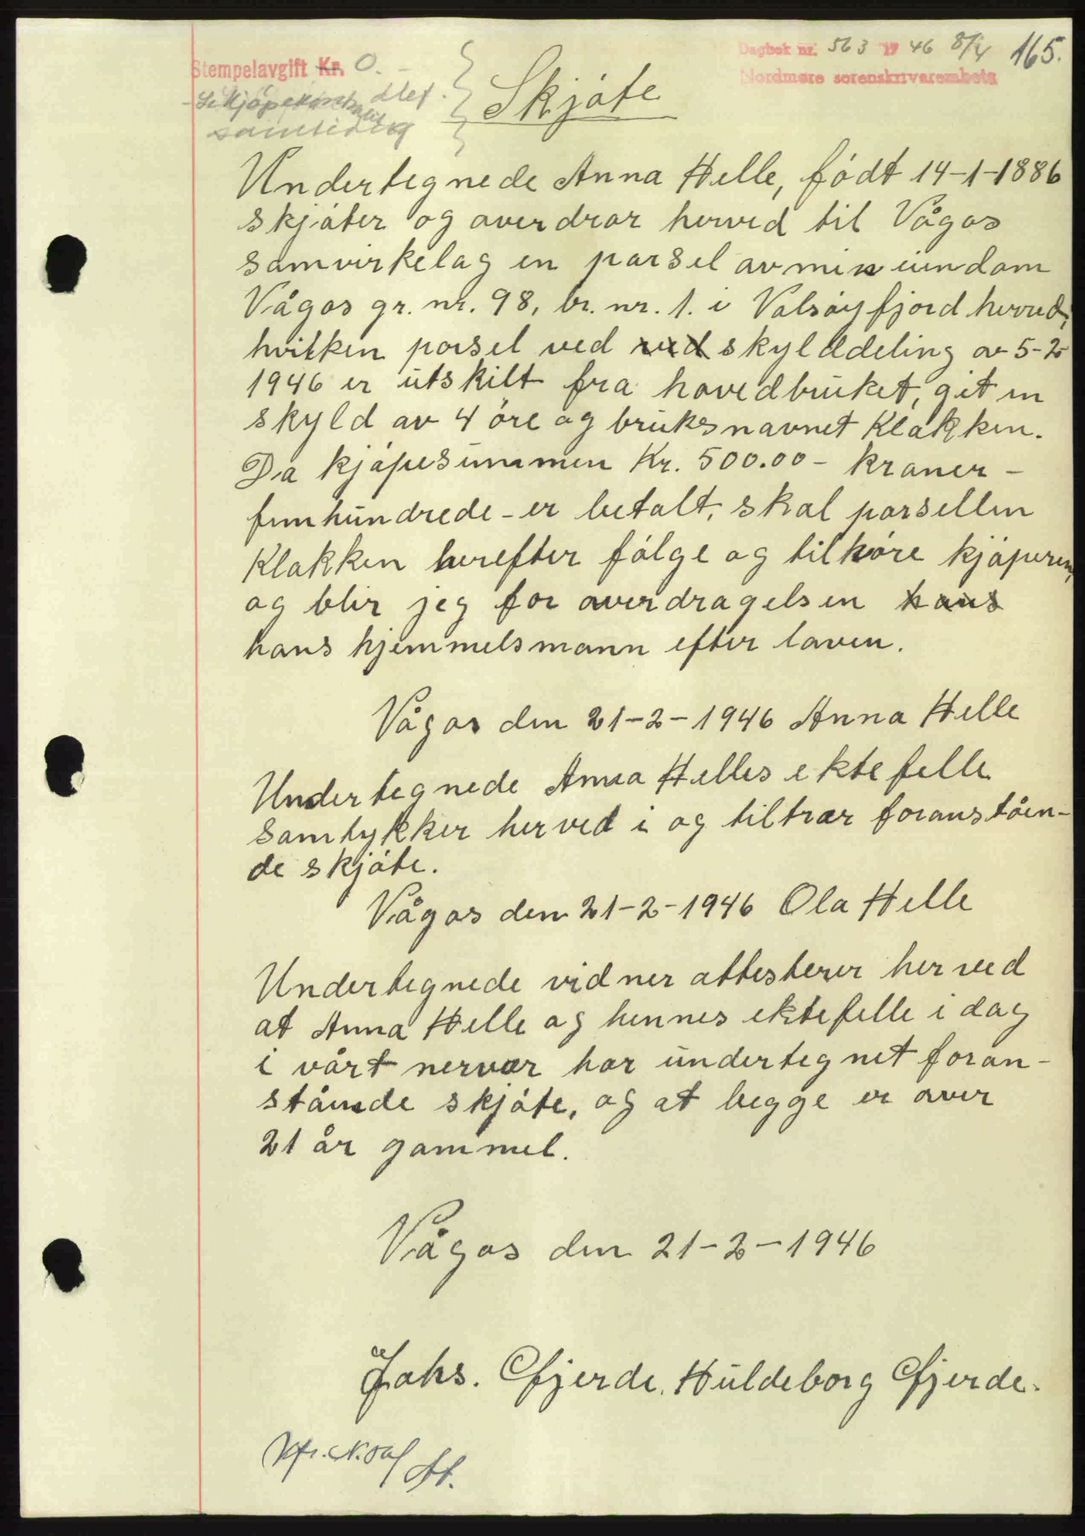 Stempelavgift Kr. 0.-
Dagbok nr. 563 1946 8/4 165.
Nordmøre sorenskriverembete
samtidig
Skjøte
Undertegnede Anna Helle, født 14-1-1886
skjøter og overdrar herved til Vågos
samvirkelag en parsel av min eiendom
Vågos gr. nr. 98, br. nr. 1. i Valsøyfjord herred,
hvilken parsel ved ved skylddeling av 5-2
1946 er utskilt fra hovedbruket, git en
skyld av 4 øre og bruksnavnet Klakken.
Da kjøpesummen Kr. 500.00 - kroner -
femhundrede - er betalt, skal parsellen
Klakken herefter følge og tilhøre kjøperen,
og blir jeg for overdragelsen hans
hans hjemmelsmann efter loven.
Vågos den 21-2-1946 Anna Helle
Undertegnede Anna Helles ektefelle
samtykker herved i og tiltrær foranståen-
de skjøte.
Vågos den 21-2-1946 Ola Helle
Undertegnede vidner attesterer herved
at Anna Helle og hennes ektefelle i dag
i vårt nervær har undertegnet foran-
stående skjøte, og at begge er over
21 år gammel.
Vågos den 21-2-1946
Johs. Gjerde. Huldeborg Gjerde.